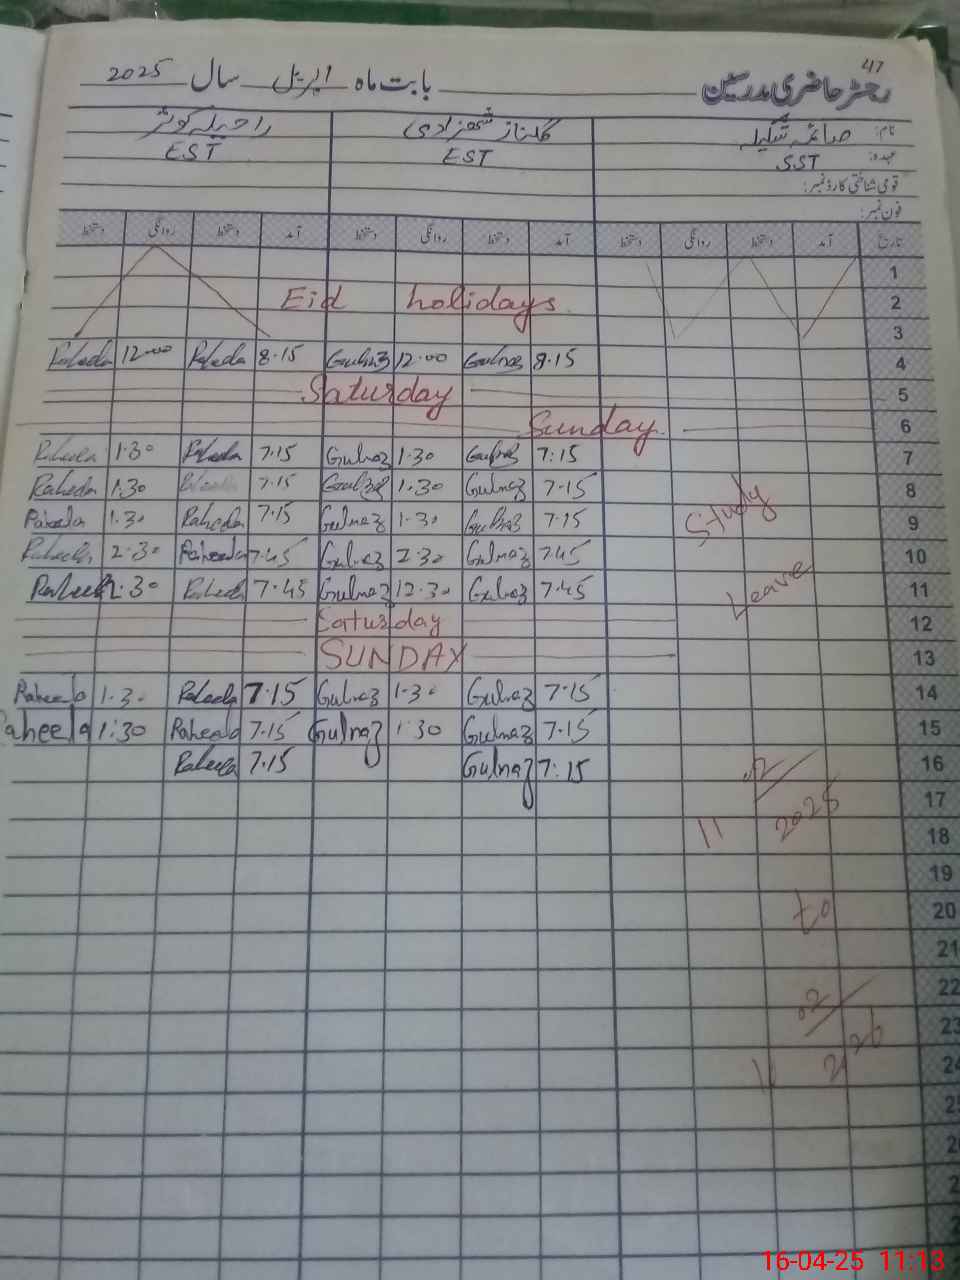 47
رجسٹر حاضری مدرسین بابت ماہ اپریل سال 2025
نام: صائمہ شکیلہ گلناز شہزادی راحیلہ کوثر
عہدہ: SST EST EST
قومی شناختی کارڈ نمبر:
فون نمبر:
تاریخ آمد دستخط روانگی دستخط آمد دستخط روانگی دستخط آمد دستخط روانگی دستخط
1
Eid holidays 2
3
Raheela 12.00 Raheela 8.15 Gulnaz 12.00 Gulnaz 8.15 4
Saturday 5
Sunday 6
Raheela 1.30 Raheela 7.15 Gulnaz 1.30 Gulnaz 7:15 7
Raheela 1.30 Raheela 7.15 Gulnaz 1.30 Gulnaz 7.15 8
Raheela 1.30 Raheela 7.15 Gulnaz 1.30 Gulnaz 7.15 Study 9
Raheela 2.30 Raheela 7.45 Gulnaz 2.30 Gulnaz 7.45 10
Raheela 12.30 Raheela 7.45 Gulnaz 12.30 Gulnaz 7.45 Leave 11
Saturday 12
SUNDAY 13
Raheela 1.30 Raheela 7.15 Gulnaz 1.30 Gulnaz 7.15 14
Raheela 1:30 Raheela 7.15 Gulnaz 1:30 Gulnaz 7.15 15
Raheela 7.15 Gulnaz 7:15 16
17
11 02 2025 18
19
to 20
21
22
02 23
2026 24
16-04-25 11:13